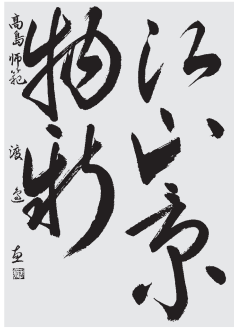 江山景
物新
高島師範
渡邉